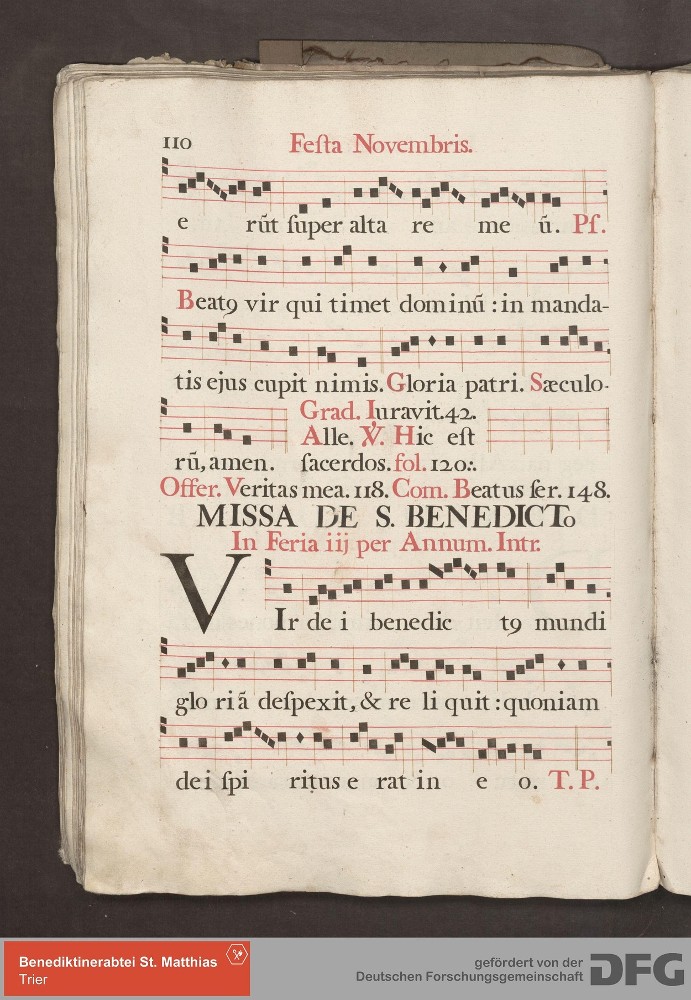 110 Feſta Novembris.
e rūt ſuper alta re me ū. Pſ.
Beatꝯ vir qui timet dominū : in manda-
tis ejus cupit nimis. Gloria patri. Sæculo-
Grad. Juravit.42.
Alle. ℣. Hic eſt
rū, amen. ſacerdos. fol. 120.
Offer. Veritas mea. 118. Com. Beatus ſer. 148.
MISSA DE S. BENEDICTo
In Feria iij per Annum. Intr.
VIr de i benedic tꝯ mundi
glo riā deſpexit, & re li quit : quoniam
de i ſpi ritus e rat in e o. T. P.
Benediktinerabtei St. Matthias
Trier
gefördert von der
Deutschen Forschungsgemeinschaft DFG